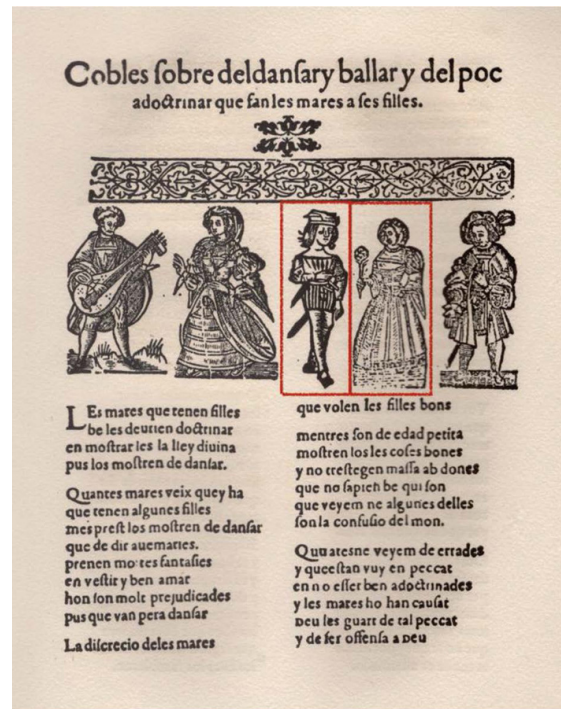 Cobles ſobre deldanſary ballar y del poc
adoctrinar que fan les mares a ſes filles.
LEs mares que tenen filles
be les deurien doctrinar
en moſtrar les la lley diuina
pus los moſtren de danſar.
Quantes mares veix quey ha
que tenen algunes filles
mes preſt los moſtren de danſar
que de dir auemaries.
prenen moltes fantaſies
en veſtir y ben amar
hon ſon molt prejudicades
pus que van pera danſar
La diſcrecio deles mares
que volen les filles bons
mentres ſon de edad petita
moſtren los les coſes bones
y no treſtegen maſſa ab dones
que no ſapien be qui ſon
que veyem ne algunes delles
ſon la confuſio del mon.
Quuatesne veyem de errades
y queeſtan vuy en peccat
en no eſſer ben adoctrinades
y les mares ho han cauſat
Deu les guart de tal peccat
y de fer offenſa a Deu